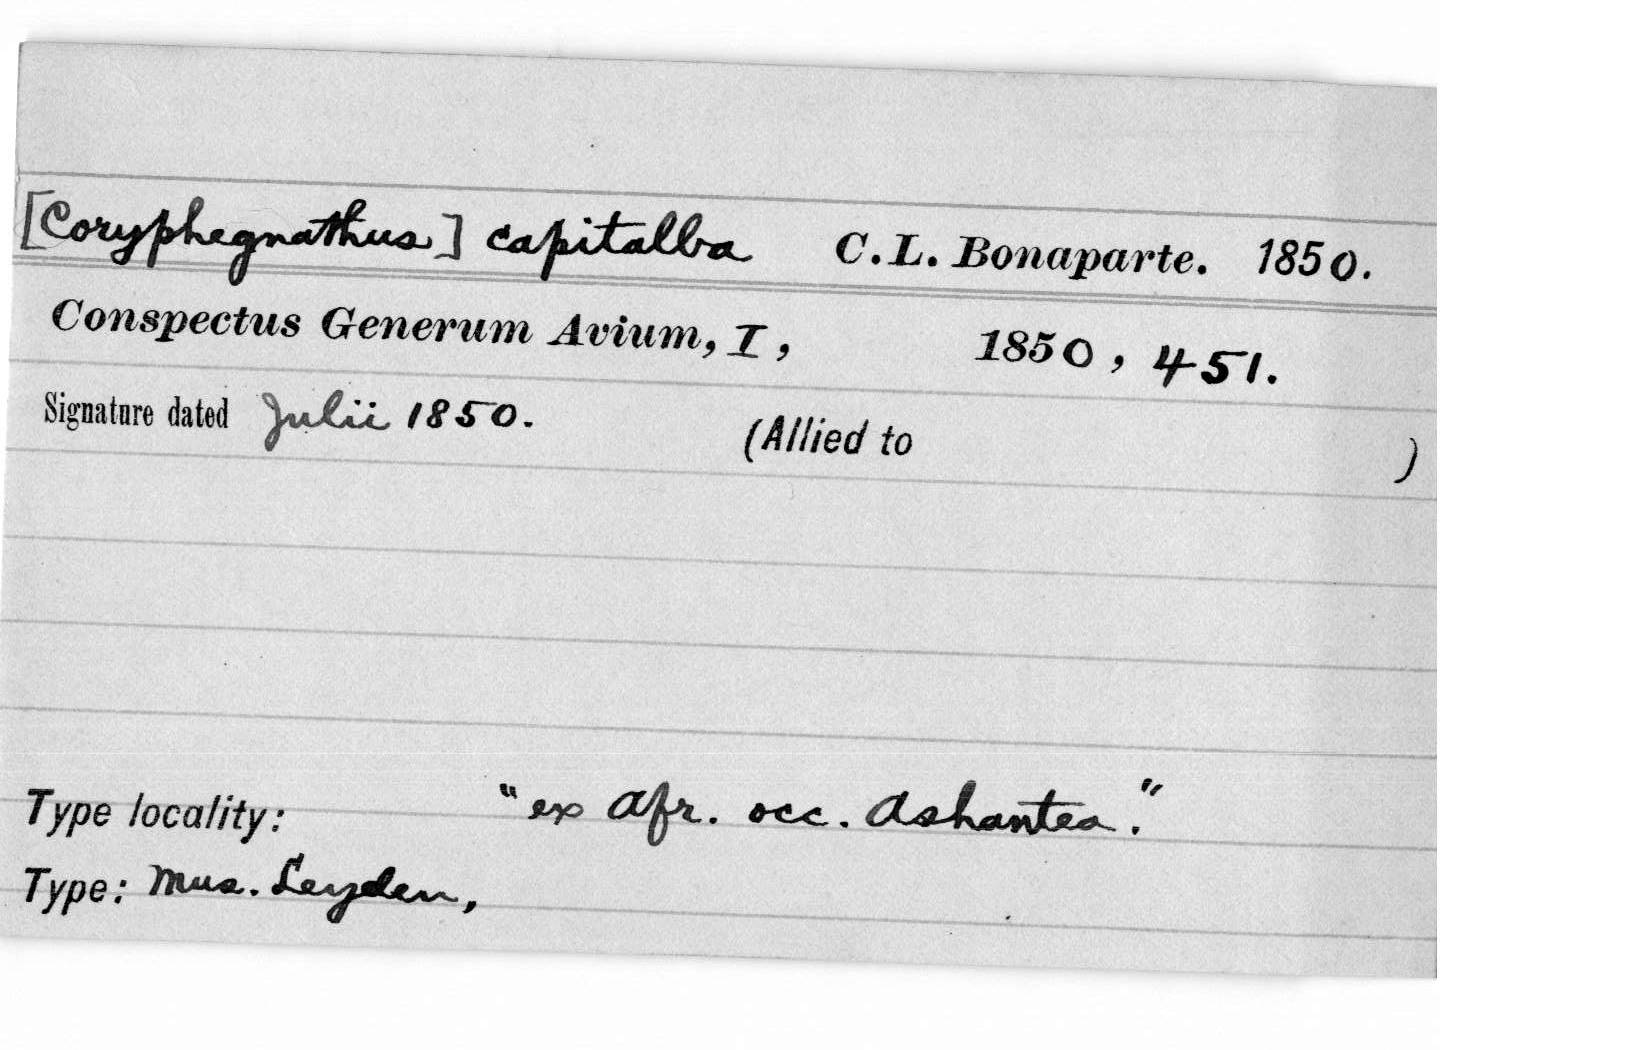 [Coryphegnathus] capitalba C. L. Bonaparte. 1850.
Conspectus Generum Avium, I, 1850, 451.
Signature dated Julii 1850. (Allied to )
Type locality: "ex Afr. occ. Ashantea."
Type: Mus. Leyden,